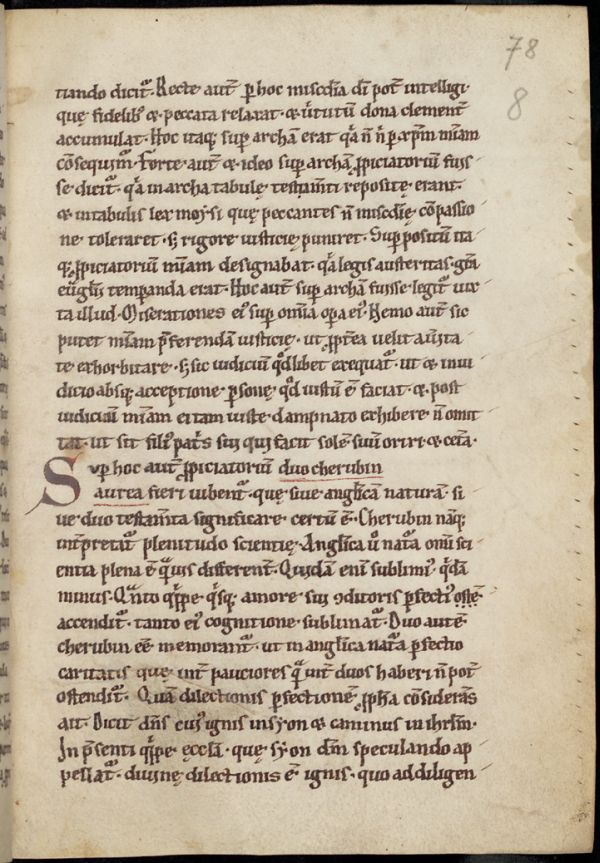 78
8
tiando dicit᷑. Recte aut̄ ꝑ hoc misc̄dia dī pot̄ intelligi.
quę fidelib; & peccata relaxat. & ũtutũ dona clement̄
accumulat. Hoc itaq; sup̲ archā erat q̇a ñ ñ ꝑ xp̄m m̄iam
cōsequim᷑. Forte aut̄ & ideo sup̲ archā ꝓpiciatoriũ fuis-
se dicit᷑. q̇a in archa tabulę testam̄ti repositę erant.
& in tabulis lex moysi quę peccantes ñ misc̄dię cōpassio
ne toleraret. s; rigore iusticię puniret. Sup̲positũ ita
q; ꝓpiciatoriũ m̄iam designabat. q̇a legis austeritas. gr̄a
euḡlii temp̲anda erat. Hoc aut̄ sup̲ archā fuisse legit᷑ iux
ta illud. Miserationes ei᷒ sup̲ om̄ia op̲a ei᷒. Nemo aut̄ sic
putet m̄iam p̄ferendā iusticię. ut ꝓpt̄ea velit a ũita
te exorbitare. s; sic iudiciũ qd̄libet exequat᷑. ut & in iu
dicio absq; acceptione ꝑsonę. qd̄ iustũ ē faciat. & post
iudiciũ m̄iam etiam iuste dampnato exhibere ñ omit
tat. ut sit fili᷒ pat̄s sui qui facit solē suũ oriri. & cet̄a.
Sup̲ hoc aut̄ ꝓpiciatoriũ duo cherubin
aurea fieri iubent᷑. quę siue anglīca naturā. si
ue duo testam̄ta significare certũ ē. Cherubin nāq;
int̄pretat᷑ plenitudo scientię. Anglīca ũ nat᷑a om̄i sci
entia plena ē q̇uis different̄. Quidā eni sublimi᷒. q̇dā
minus. Q̄nto q̇ppe q̇sq; amore sui ꝯditoris ꝑfecti᷒
accendit᷑. tanto ei᷒ cognitione sublimat᷑. Duo aut̄
cherubin ēe memorant᷑. ut in anglīca nat᷑a ꝑfectio
caritatis que int̄ pauciores q̄ int̄ duos haberi ñ pot̄
ostendit᷑. Quā dilectionis ꝑfectionē ꝓph̄a cōsiderās
ait. Dicit dn̄s cui᷒ ignis in syon & caminus in ihrl̄m.
In p̄senti q̇ppe ęccl̄a. que syon dm̄ speculando ap
pellat᷑. diuinę dilectionis ē ignis. quo ad diligen